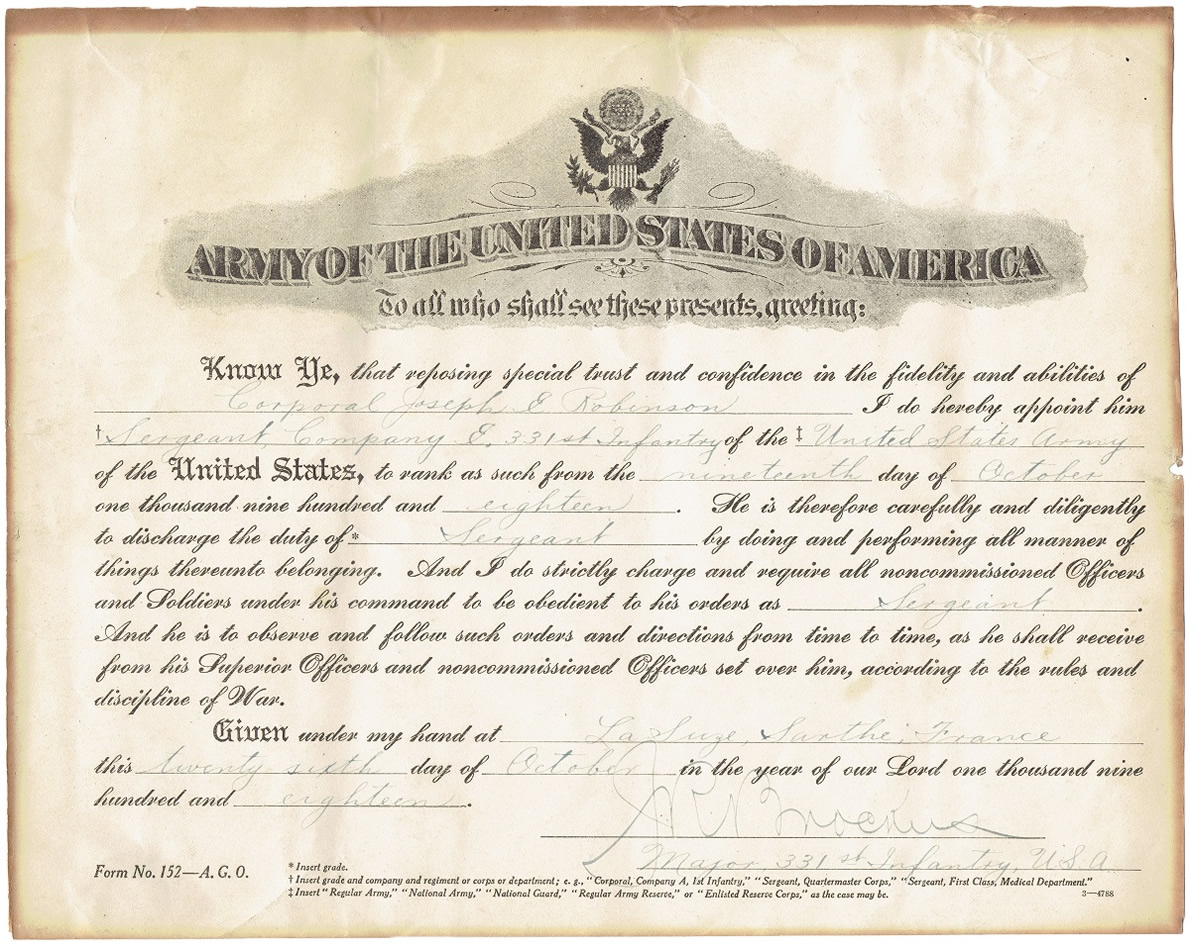 ARMY OF THE UNITED STATES OF AMERICA
To all who shall see these presents, greeting:
Know Ye, that reposing special trust and confidence in the fidelity and abilities of
Corporal Joseph E Robinson I do hereby appoint him
† Sergeant, Company E. 331st Infantry of the ‡ United States Army
of the United States, to rank as such from the nineteenth day of October
one thousand nine hundred and eighteen. He is therefore carefully and diligently
to discharge the duty of* Sergeant by doing and performing all manner of
things thereunto belonging. And I do strictly charge and require all noncommissioned Officers
and Soldiers under his command to be obedient to his orders as Sergeant.
And he is to observe and follow such orders and directions from time to time, as he shall receive
from his Superior Officers and noncommissioned Officers set over him, according to the rules and
discipline of War.
Given under my hand at La Suze, Sarthe, France
this twenty sixth day of October in the year of our Lord one thousand nine
hundred and eighteen.
Major 331st Infantry, U.S.A
Form No. 152—A. G. O.
* Insert grade.
† Insert grade and company and regiment or corps or department; e. g., "Corporal, Company A, 1st Infantry," "Sergeant, Quartermaster Corps," "Sergeant, First Class, Medical Department."
‡ Insert "Regular Army," "National Army," "National Guard," "Regular Army Reserve," or "Enlisted Reserve Corps," as the case may be.
3—4788